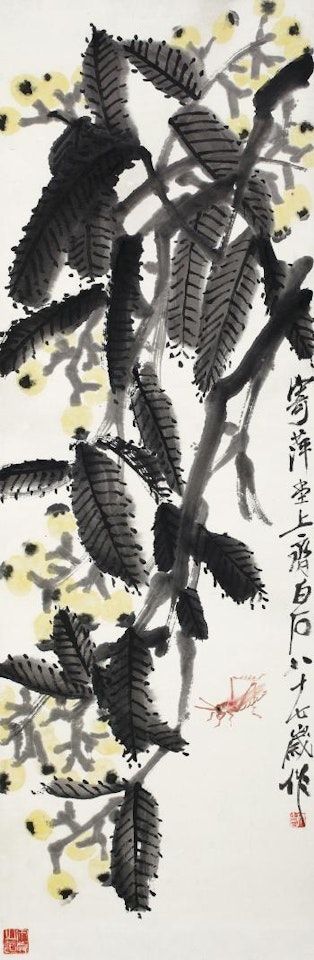 寄萍堂上齊白石八十七歲作